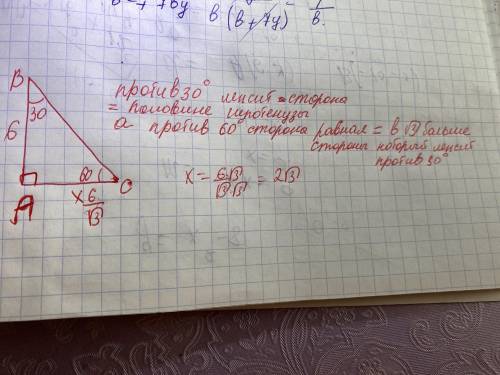 b(b+7y)
B
30
6
A
60
C
x 6/√3
против 30° лежит сторона
= половине гипотенузы
а против 60° сторона равная = в √3 больше
стороны который лежит
против 30°
x = 6√3/√3·√3 = 2√3